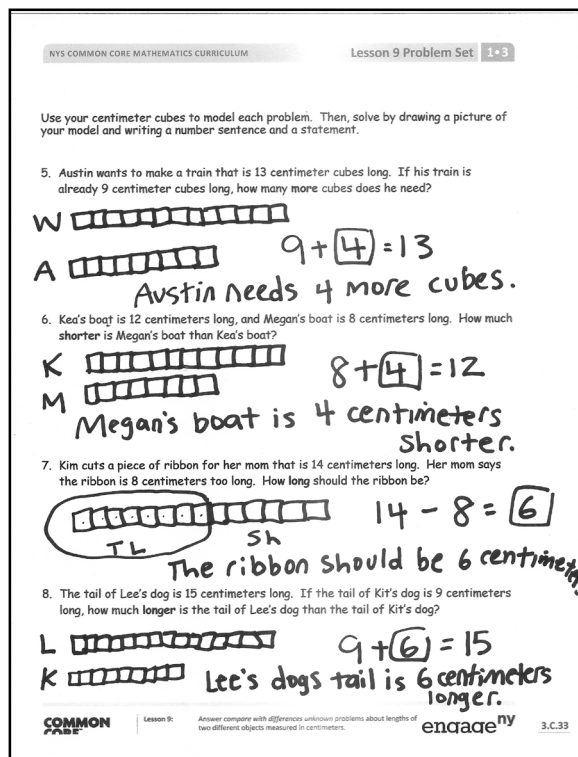 NYS COMMON CORE MATHEMATICS CURRICULUM Lesson 9 Problem Set 1•3
Use your centimeter cubes to model each problem. Then, solve by drawing a picture of
your model and writing a number sentence and a statement.
5. Austin wants to make a train that is 13 centimeter cubes long. If his train is
already 9 centimeter cubes long, how many more cubes does he need?
W
A 9 + 4 = 13
Austin needs 4 more cubes.
6. Kea's boat is 12 centimeters long, and Megan's boat is 8 centimeters long. How much
shorter is Megan's boat than Kea's boat?
K
M 8 + 4 = 12
Megan's boat is 4 centimeters
shorter.
7. Kim cuts a piece of ribbon for her mom that is 14 centimeters long. Her mom says
the ribbon is 8 centimeters too long. How long should the ribbon be?
14 - 8 = 6
TL Sh
The ribbon should be 6 centimete
8. The tail of Lee's dog is 15 centimeters long. If the tail of Kit's dog is 9 centimeters
long, how much longer is the tail of Lee's dog than the tail of Kit's dog?
L 9 + 6 = 15
K Lee's dogs tail is 6 centimeters
longer.
COMMON
CORE
Lesson 9:
Answer compare with differences unknown problems about lengths of
two different objects measured in centimeters.
engage ny
3.C.33